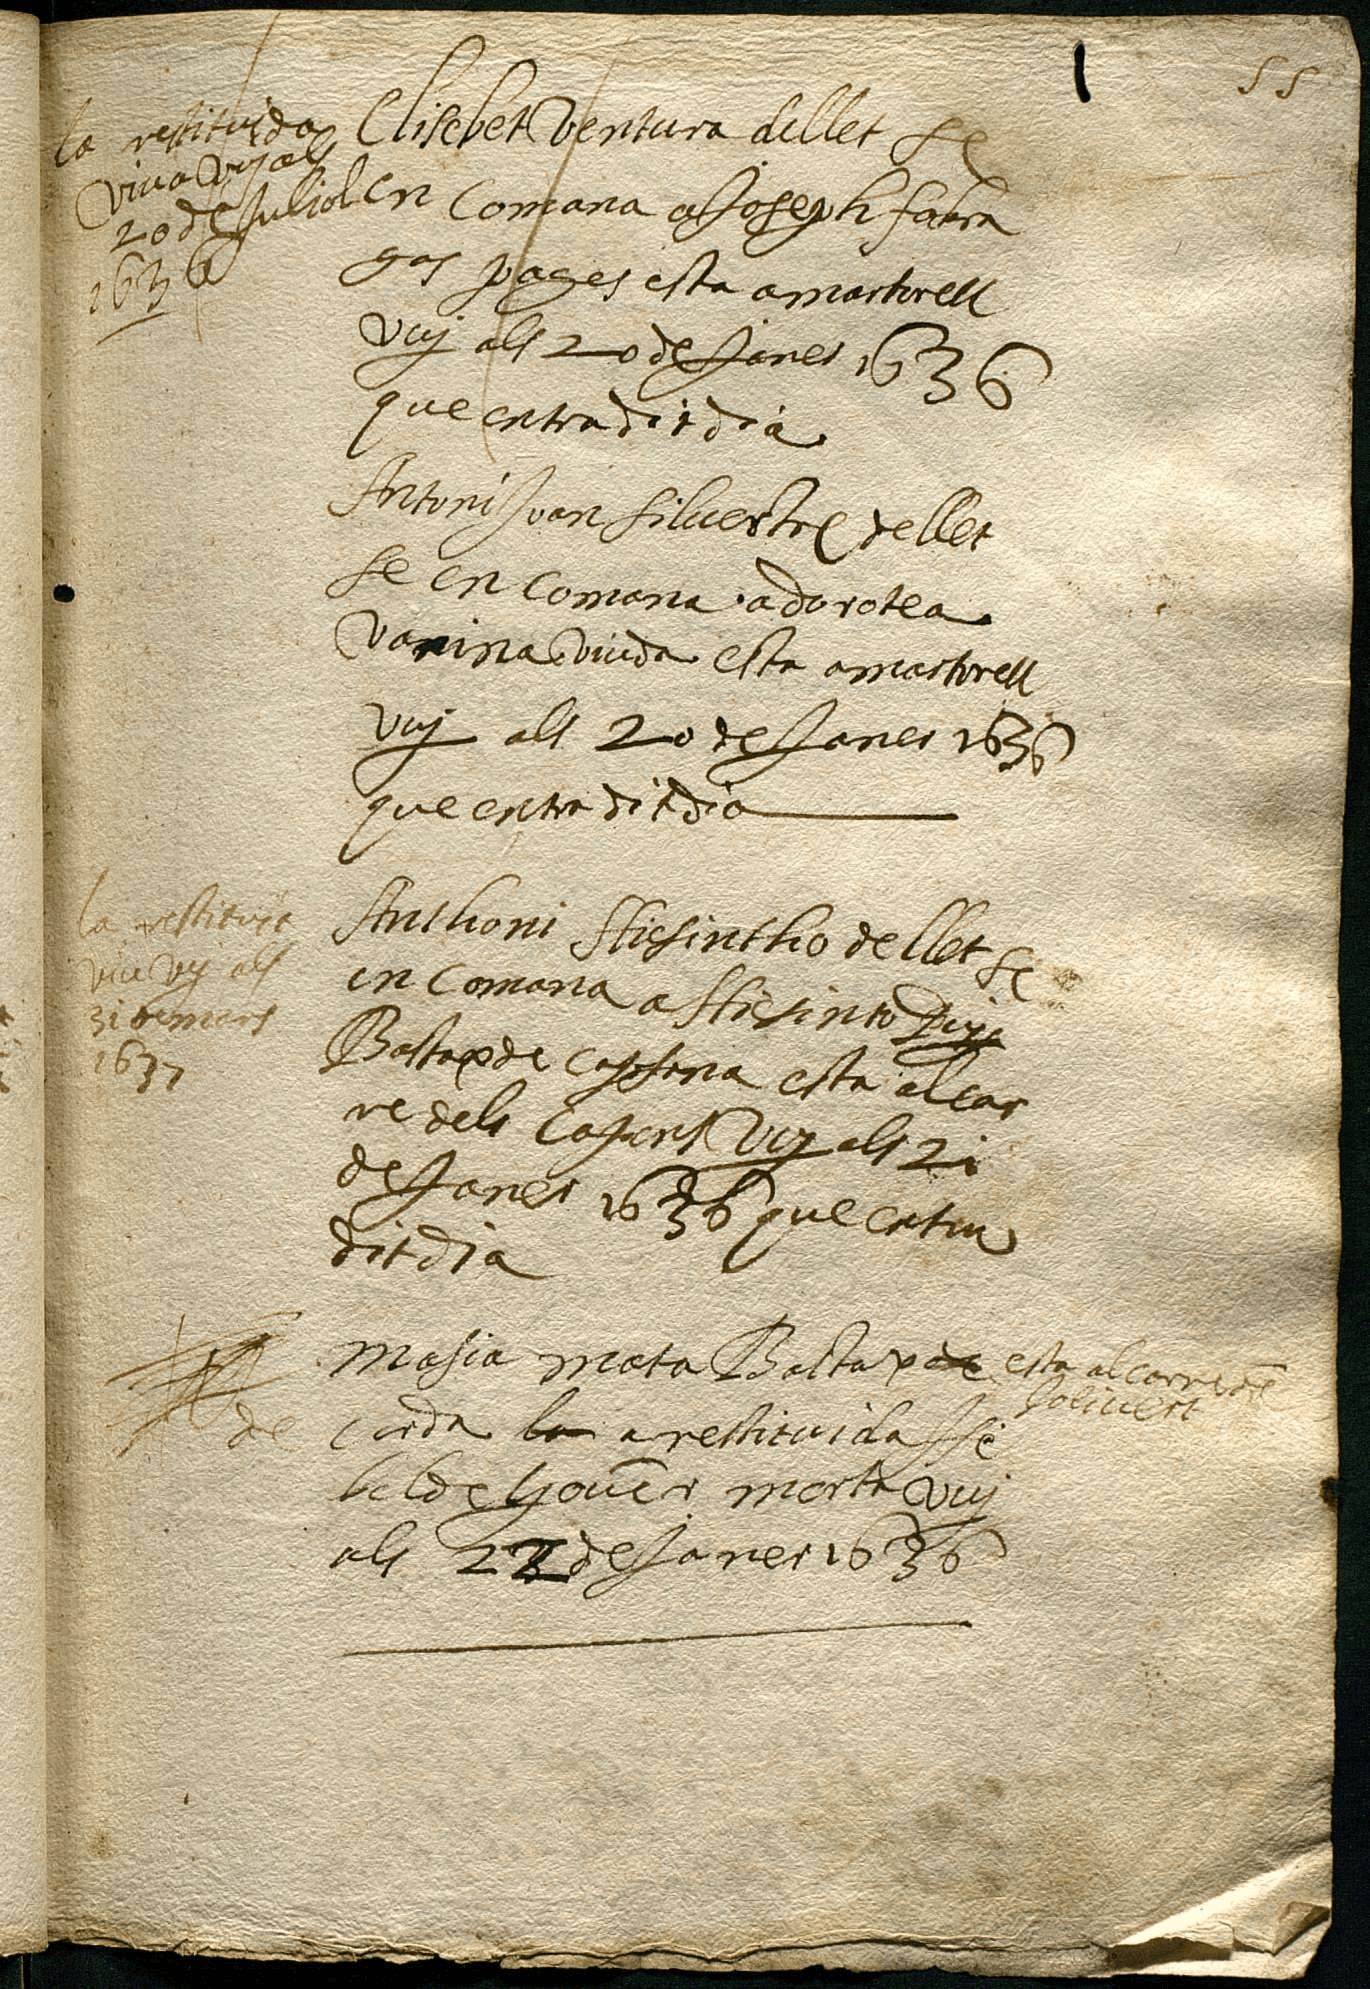 55
la restituida
viva vuy als
20 de Juliol
1636
Elisebet Ventura dellet se
en Comana a Joseph fabra
gas pages esta a martorell
vuj als 20 de Janer 1636
que entra dit dia
Antoni Juan Silvestre de llet
se en comana a dorotea
vanina viuda esta a martorell
vuj als 20 de Janer 1636
que entra dit dia
la restituit
viu vuy als
31 de mars
1637
Anthoni Hiesintho de llet se
en comana a Hiesinto puig
Bastax de capsana esta al car
re dels Capers Vuy als 21
de Janer 1636 que entra
dit dia
masia mata Bastax de esta al carre de
de corda la a restituida
morta vuj
als 22 de Janer 1636